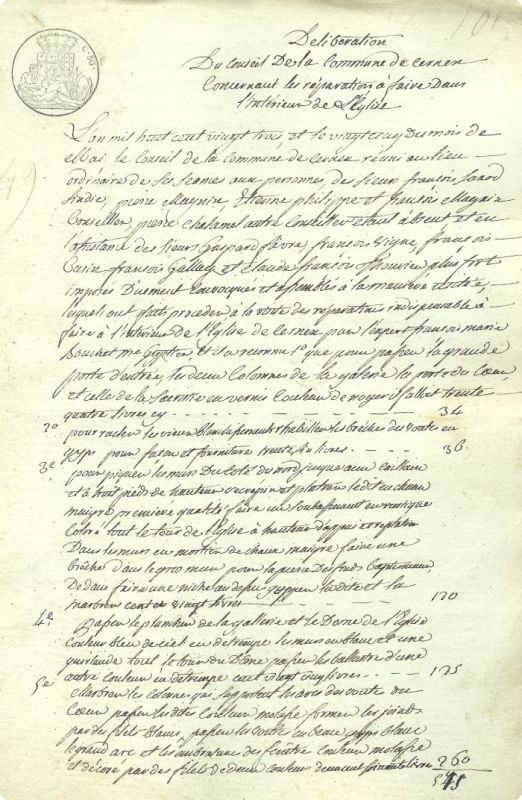 101
C. 60.
Deliberation
Du Conseil De la Commune de Cernex
Concernant les réparation à faire Dans
l'intérieur de L'Eglise
L'an mil huit cent vingt trois et le vingt cinq Du mois de
Mai le Conseil de la Commune de Cernex réuni au lieu
ordinaire de ses séances aux personnes, des sieur françois
Sindic, pierre Magnin, Etienne philippe et françois Magnin
Conseiller, pierre Chalamel autre Conseiller étant absent et en
l'assistance des sieurs Gaspard favre, françois vigne, françois
françois Gallay et Claude françois Bouvier plus fort
imposés Duement Convoqués et assemblés à la manière
lesquels ont faits proceder à la note des réparation indispensable à
faire à l'intérieur De l'Eglise de Cernex par l'expert françois marie
Bouchet me Gypsien, et il a reconnu 1o que pour passer la grande
porte d'entrée, les deux Colonnes de la galerie les porte du Coeur,
et celle de la Sacristie en vernis Couleur de noyer il falloit trente
quatre livres cy 34
2o pour racler les vieux et rhabiller les brêches des voutes en
gyps pour façon et fourniture trente six livres 36
3e pour piquer les murs Du Coté du nord jusque au Caillou
et à huit pieds de hauteur recrépir et platrir le dit en chaux
maigre premiere qualité faire un Soubassement en rustique
Coloré tout le tour de l'Eglise à hauteur d'appui
Dans les murs en mortier de Chaux maigre faire une
brêche dans le gros mur pour la pierre Des fonds baptismaux
De dans faire une niche au dessus la dite et la
marbrer cent et vingt livres 120
4e passer le plancher de la gallerie et le Dome de l'Eglise
Couleur bleu de ciel en détrempe les murs en blanc et une
guirlande tout le tour du Dome passer les ballustre d'une
autre Couleur en détrempe cent vingt cinq livres 125
5e Marbrer les Colonnes qui supportent les arcs des voutes du
Coeur passer les dites Couleur molasse former les joints
par des filets blancs, passer les voutes en beau blanc
le grand arc et les embrasures des fenêtre Couleur molasse
et décoré par des filets de deux Couleur deux cent soixante livres 260
575